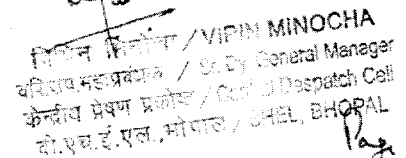 विपिन मिनोचा / VIPIN MINOCHA
वरि.उप.महाप्रबंधक / Sr. Dy. General Manager
केन्द्रीय प्रेषण प्रकोष्ठ / Central Despatch Cell
बी.एच.ई.एल.,भोपाल / BHEL, BHOPAL